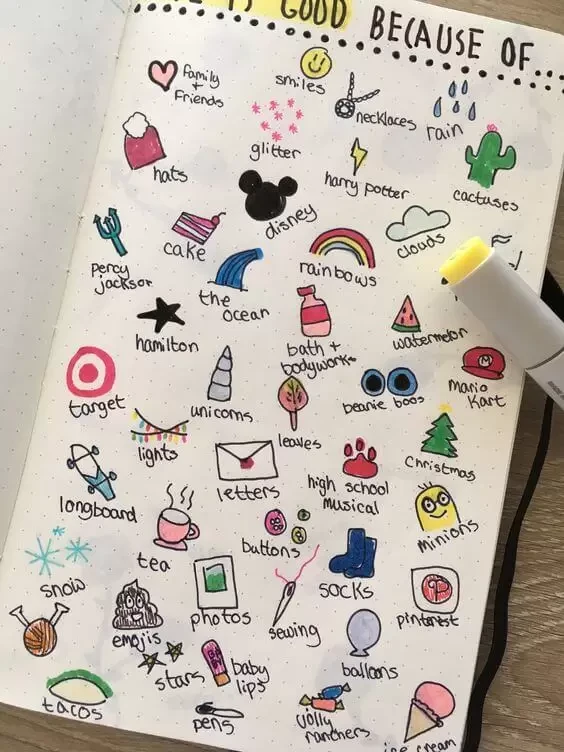 IS GOOD
BECAUSE OF...
family
+
friends
smiles
necklaces
rain
glitter
hats
harry potter
cactuses
disney
cake
clouds
percy
jackson
rainbows
the
ocean
hamilton
bath +
bodyworks
watermelon
target
unicorns
beanie boos
M
mario
kart
lights
leaves
christmas
longboard
letters
high school
musical
minions
tea
buttons
snow
socks
photos
pinterest
emojis
sewing
balloons
stars
BABY
baby
lips
tacos
pens
jolly
ranchers
ice cream